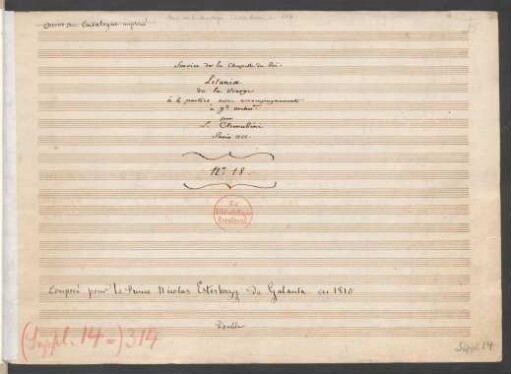 Service de la Chapelle du Roi.
Litanie
de la Vierge
à 4 parties avec accompagnement
à gd. orchre.
par
L. Cherubini
Paris
N° 18.
Composé pour le Prince Nicolas Esterhazy De Galanta en 1810
Double
(Suppl. 14=) 314
Suppl. 14